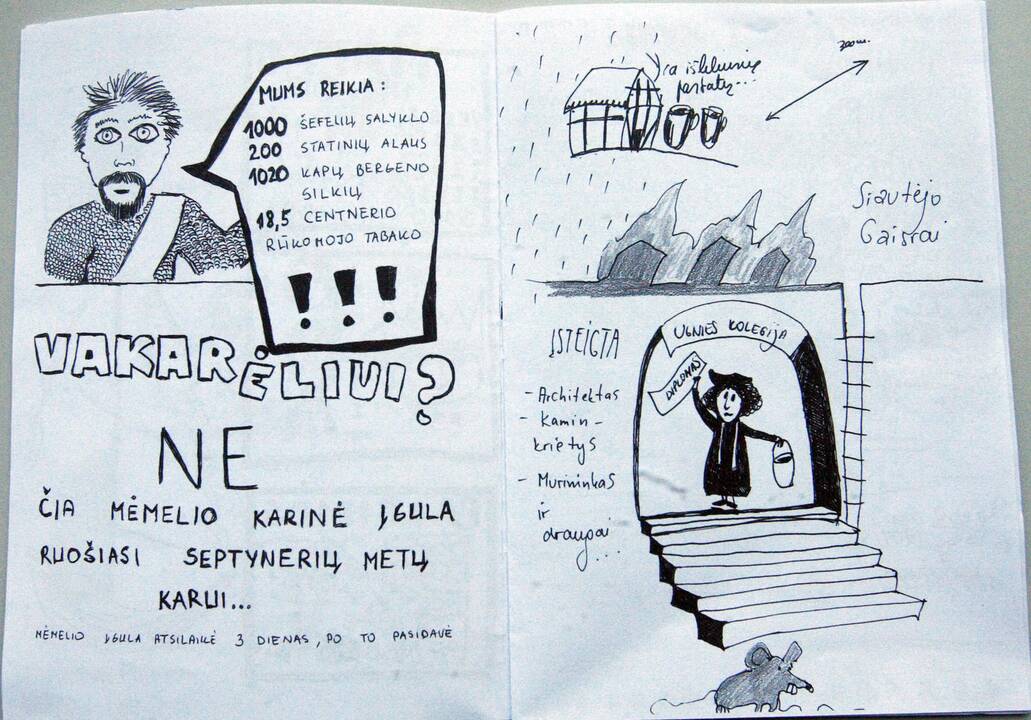 MUMS REIKIA:
1000 ŠEFELIŲ SALYKLO
200 STATINIŲ ALAUS
1020 KAPŲ BERGENO
SILKIŲ
18,5 CENTNERIO
RŪKOMOJO TABAKO
!!!
VAKARĖLIUI?
NE
ČIA MĖMELIO KARINĖ ĮGULA
RUOŠIASI SEPTYNERIŲ METŲ
KARUI...
MĖMELIO ĮGULA ATSILAIKĖ 3 DIENAS, PO TO PASIDAVĖ
pastatų...
Siautėjo
Gaisrai
ĮSTEIGTA
UGNIES KOLEGIJA
DIPLOMAS
- Architektas
- Kamin-
krėtys
- Murininkas
ir
draugai
...